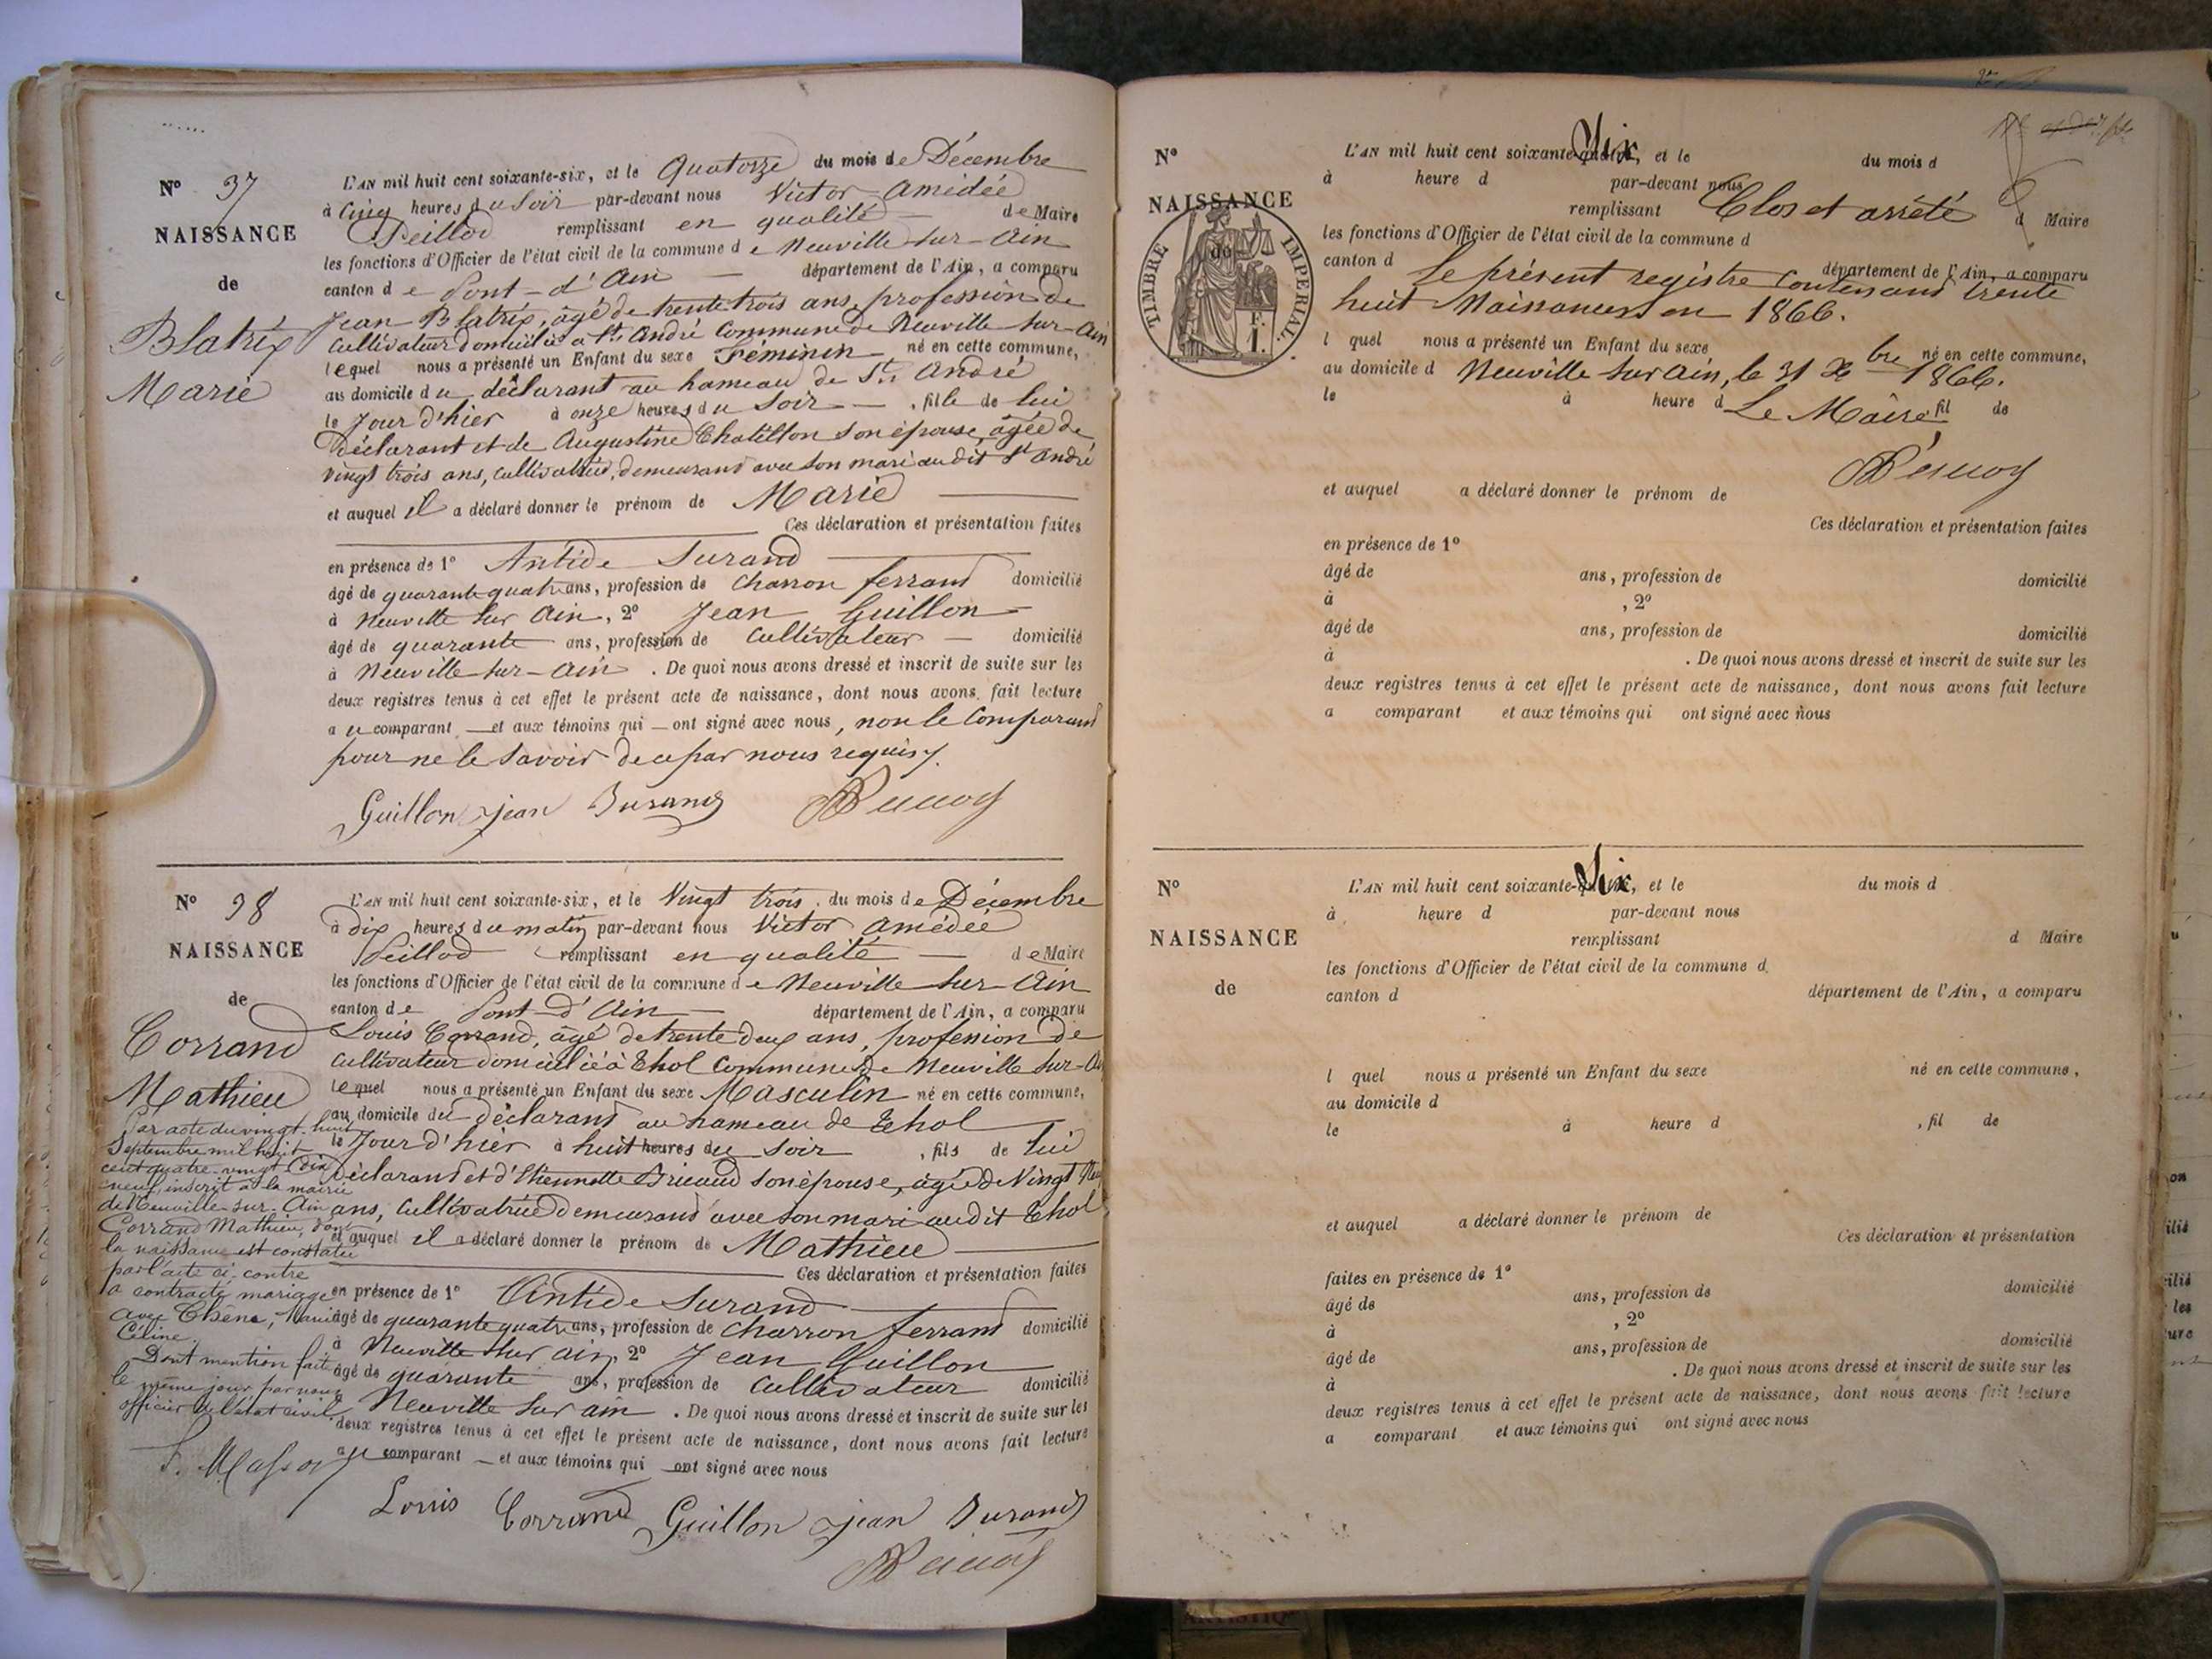 N° 37
NAISSANCE
de
Blatrix
Marie
L'AN mil huit cent soixante-six, et le Quatorze du mois de Décembre
à Cinq heures du Soir par-devant nous Victor Amédée
Peillod remplissant en qualité de Maire
les fonctions d'Officier de l'état civil de la commune de Neuville-sur-Ain
canton de Pont-d'Ain département de l'Ain, a comparu
Jean Blatrix, âgé de trente trois ans, profession de
Cultivateur domicilié a St André Commune de Neuville sur-Ain
lequel nous a présenté un Enfant du sexe Féminin né en cette commune,
au domicile du déclarant au hameau de St André
le Jour d'hier à onze heures du Soir, fille de lui
Déclarant et de Augustine Chatillon son épouse, agée de
vingt trois ans, cultivatrice, demeurant avec son mari audit St André
et auquel il a déclaré donner le prénom de Marie
Ces déclaration et présentation faites
en présence de 1° Antide Durand
âgé de quarante quatre ans, profession de Charron ferrant domicilié
à Neuville sur Ain, 2° Jean Guillon
âgé de quarante ans, profession de Cultivateur domicilié
à Neuville-sur-Ain. De quoi nous avons dressé et inscrit de suite sur les
deux registres tenus à cet effet le présent acte de naissance, dont nous avons fait lecture
au comparant et aux témoins qui ont signé avec nous, non le Comparant
pour ne le savoir de ce par nous requis.
Guillon jean Durand
N° 38
NAISSANCE
de
Corrand
Mathieu
L'AN mil huit cent soixante-six, et le Vingt trois du mois de Décembre
à dix heures du matin par-devant nous Victor Amédée
Peillod remplissant en qualité de Maire
les fonctions d'Officier de l'état civil de la commune de Neuville sur-Ain
canton de Pont-d'Ain département de l'Ain, a comparu
Louis Corrand, âgé de trente deux ans, profession de
Cultivateur domicilié à Thol Commune de Neuville sur-Ain
lequel nous a présenté un Enfant du sexe Masculin né en cette commune,
au domicile du déclarant au hameau de Thol
le Jour d'hier à huit heures du soir, fils de lui
Déclarant et d'Etiennette son épouse, agée de Vingt
ans, Cultivatrice demeurant avec son mari audit Thol
et auquel il a déclaré donner le prénom de Mathieu
Ces déclaration et présentation faites
en présence de 1° Antide Durand
âgé de quarante quatre ans, profession de Charron ferrant domicilié
à Neuville sur ain, 2° Jean Guillon
âgé de quarante ans, profession de Cultivateur domicilié
à Neuville sur ain. De quoi nous avons dressé et inscrit de suite sur les
deux registres tenus à cet effet le présent acte de naissance, dont nous avons fait lecture
au comparant et aux témoins qui ont signé avec nous
Louis Corrand Guillon jean Durand
Par acte du vingt-huit
Septembre mil huit
cent quatre-vingt-dix
neuf, inscrit à la mairie
de Neuville-sur-Ain
Corrand Mathieu, dont
la naissance est constatée
par l'acte ci-contre
a contracté mariage
avec Chêne, Marie
Céline.
Dont mention faite
le même jour par nous
officier de l'état civil.
N°
NAISSANCE
de
TIMBRE IMPÉRIAL
F.
1.
L'AN mil huit cent soixante-Six, et le du mois d
à heure d par-devant nous
remplissant Clos et arrêté d Maire
les fonctions d'Officier de l'état civil de la commune d
canton d département de l'Ain, a comparu
Le présent registre Contenant trente
huit Naissances en 1866.
l quel nous a présenté un Enfant du sexe né en cette commune,
au domicile d Neuville sur Ain, le 31 Xbre 1866.
le à heure d Le Maire fil de
et auquel a déclaré donner le prénom de
Ces déclaration et présentation faites
en présence de 1°
âgé de ans, profession de domicilié
à , 2°
âgé de ans, profession de domicilié
à . De quoi nous avons dressé et inscrit de suite sur les
deux registres tenus à cet effet le présent acte de naissance, dont nous avons fait lecture
a comparant et aux témoins qui ont signé avec nous
N°
NAISSANCE
de
L'AN mil huit cent soixante-Six, et le du mois d
à heure d par-devant nous
remplissant d Maire
les fonctions d'Officier de l'état civil de la commune d
canton d département de l'Ain, a comparu
l quel nous a présenté un Enfant du sexe né en cette commune,
au domicile d
le à heure d , fil de
et auquel a déclaré donner le prénom de
Ces déclaration et présentation
faites en présence de 1° domicilié
âgé de ans, profession de
à , 2°
âgé de ans, profession de domicilié
à . De quoi nous avons dressé et inscrit de suite sur les
deux registres tenus à cet effet le présent acte de naissance, dont nous avons fait lecture
a comparant et aux témoins qui ont signé avec nous